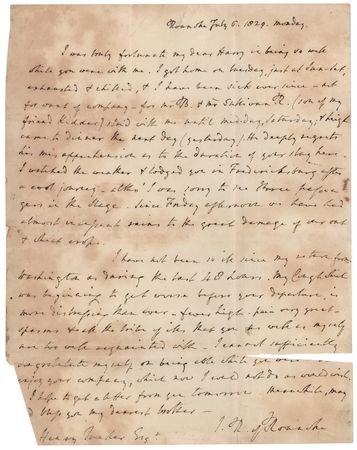 Roanoke July 6. 1829. Monday.
I was truly fortunate my dear Harry in being so well
while you were with me. I got home on tuesday, just at Sun-set,
exhausted & chilled, & I have been sick ever since — not
for want of company — for Mr B. & Mr R. (son of my
friend Kidder) staid with me until midday, Saturday; &
came to dinner the next day (yesterday). He deeply regrets
his misapprehension as to the duration of your stay here.
I watched the weather & lodged you in Fredericksburg after
a cool journey — altho' I was sorry to see three passen-
gers in the Stage. Since Friday afternoon we have had
almost incessant rains to the great damage of our oat
& wheat crops.
I have not been so ill since my return from
Washington as during the last 48 hours. My Cough that
was beginning to get worse before your departure, is
more distressing than ever — fever high — pain very great
spasms & all the tribe of ills that you as well as myself
are too well acquainted with. I cannot sufficiently
congratulate myself on being able while you were
enjoy your company, which now I could not do as
I hope to get a letter from you tomorrow. Meanwhile, may
God bless you my dearest brother —
Henry Tucker Esqr. J. R. of Roanoke